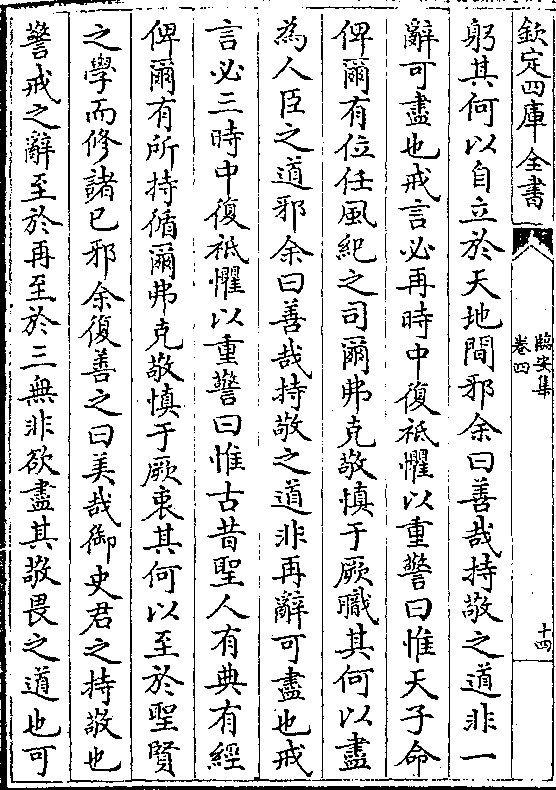 欽定四庫全書
臨安集
卷四
十四
躬其何以自立於天地間邪余曰善哉持敬之道非一
辭可盡也戒言必再時中復祗懼以重警曰惟天子命
俾爾有位任風紀之司爾弗克敬慎于厥職其何以盡
為人臣之道邪余曰善哉持敬之道非再辭可盡也戒
言必三時中復祗懼以重警曰惟古昔聖人有典有經
俾爾有所持循爾弗克敬慎于厥衷其何以至於聖賢
之學而修諸已邪余復善之曰美哉御史君之持敬也
警戒之辭至於再至於三無非欲盡其敬畏之道也可